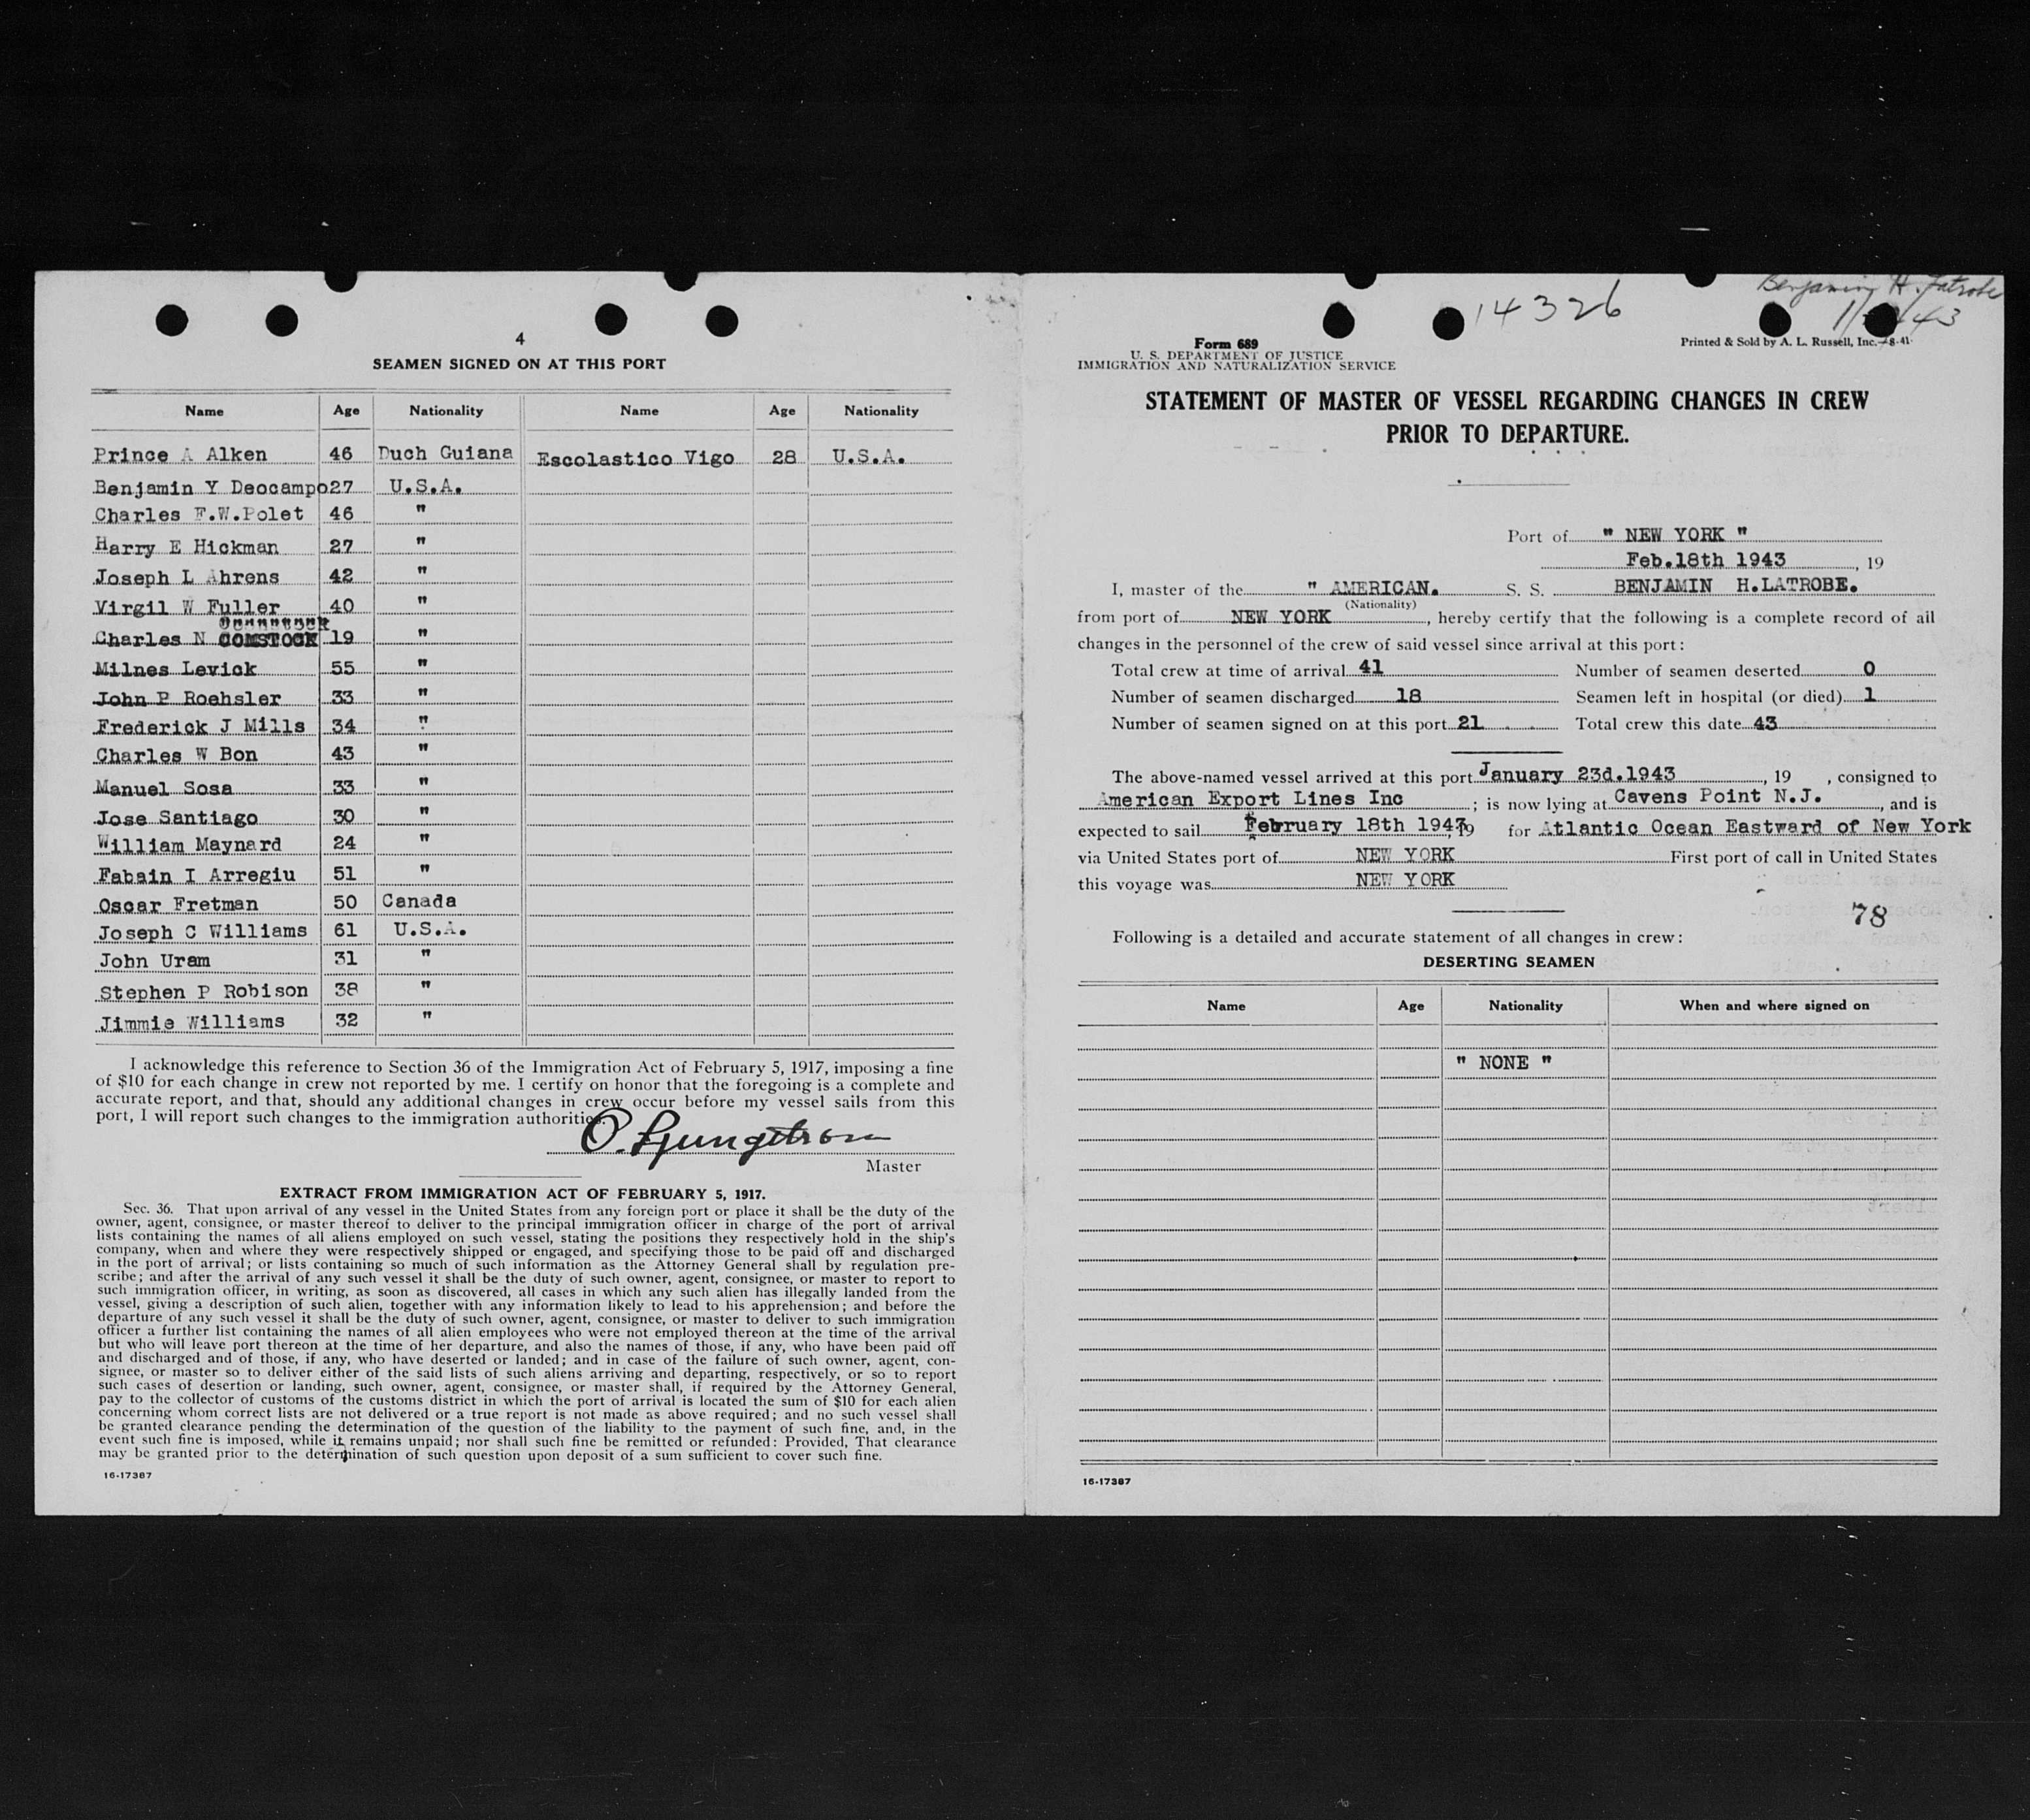 4
SEAMEN SIGNED ON AT THIS PORT
Name Age Nationality Name Age Nationality
Prince A Alken 46 Duch Guiana Escolastico Vigo 28 U.S.A.
Benjamin Y Deocampo 27 U.S.A.
Charles F.W.Polet 46 "
Harry E Hickman 27 "
Joseph L Ahrens 42 "
Virgil W Fuller 40 "
Charles N COMSTOCK 19 "
Milnes Levick 55 "
John P Roehsler 33 "
Frederick J Mills 34 "
Charles W Bon 43 "
Manuel Sosa 33 "
Jose Santiago 30 "
William Maynard 24 "
Fabain I Arregiu 51 "
Oscar Fretman 50 Canada
Joseph C Williams 61 U.S.A.
John Uram 31 "
Stephen P Robison 38 "
Jimmie Williams 32 "
I acknowledge this reference to Section 36 of the Immigration Act of February 5, 1917, imposing a fine
of $10 for each change in crew not reported by me. I certify on honor that the foregoing is a complete and
accurate report, and that, should any additional changes in crew occur before my vessel sails from this
port, I will report such changes to the immigration authorities.
O. Ljungstrom
Master
EXTRACT FROM IMMIGRATION ACT OF FEBRUARY 5, 1917.
Sec. 36. That upon arrival of any vessel in the United States from any foreign port or place it shall be the duty of the
owner, agent, consignee, or master thereof to deliver to the principal immigration officer in charge of the port of arrival
lists containing the names of all aliens employed on such vessel, stating the positions they respectively hold in the ship's
company, when and where they were respectively shipped or engaged, and specifying those to be paid off and discharged
in the port of arrival; or lists containing so much of such information as the Attorney General shall by regulation pre-
scribe; and after the arrival of any such vessel it shall be the duty of such owner, agent, consignee, or master to report to
such immigration officer, in writing, as soon as discovered, all cases in which any such alien has illegally landed from the
vessel, giving a description of such alien, together with any information likely to lead to his apprehension; and before the
departure of any such vessel it shall be the duty of such owner, agent, consignee, or master to deliver to such immigration
officer a further list containing the names of all alien employees who were not employed thereon at the time of the arrival
but who will leave port thereon at the time of her departure, and also the names of those, if any, who have been paid off
and discharged and of those, if any, who have deserted or landed; and in case of the failure of such owner, agent, con-
signee, or master so to deliver either of the said lists of such aliens arriving and departing, respectively, or so to report
such cases of desertion or landing, such owner, agent, consignee, or master shall, if required by the Attorney General,
pay to the collector of customs of the customs district in which the port of arrival is located the sum of $10 for each alien
concerning whom correct lists are not delivered or a true report is not made as above required; and no such vessel shall
be granted clearance pending the determination of the question of the liability to the payment of such fine, and, in the
event such fine is imposed, while it remains unpaid; nor shall such fine be remitted or refunded: Provided, That clearance
may be granted prior to the determination of such question upon deposit of a sum sufficient to cover such fine.
16-17387
Benjamin H. Latrobe
14326
Form 689
Printed & Sold by A. L. Russell, Inc.-8-41
U. S. DEPARTMENT OF JUSTICE
IMMIGRATION AND NATURALIZATION SERVICE
STATEMENT OF MASTER OF VESSEL REGARDING CHANGES IN CREW
PRIOR TO DEPARTURE.
Port of " NEW YORK "
Feb.18th 1943, 19
I, master of the " AMERICAN. S. S. BENJAMIN H.LATROBE.
(Nationality)
from port of NEW YORK, hereby certify that the following is a complete record of all
changes in the personnel of the crew of said vessel since arrival at this port:
Total crew at time of arrival 41 Number of seamen deserted 0
Number of seamen discharged 18 Seamen left in hospital (or died) 1
Number of seamen signed on at this port 21 Total crew this date 43
The above-named vessel arrived at this port January 23d.1943, 19 , consigned to
American Export Lines Inc ; is now lying at Cavens Point N.J., and is
expected to sail February 18th 1943, 19 for Atlantic Ocean Eastward of New York
via United States port of NEW YORK First port of call in United States
this voyage was NEW YORK
78
Following is a detailed and accurate statement of all changes in crew:
DESERTING SEAMEN
Name Age Nationality When and where signed on
" NONE "
16-17387